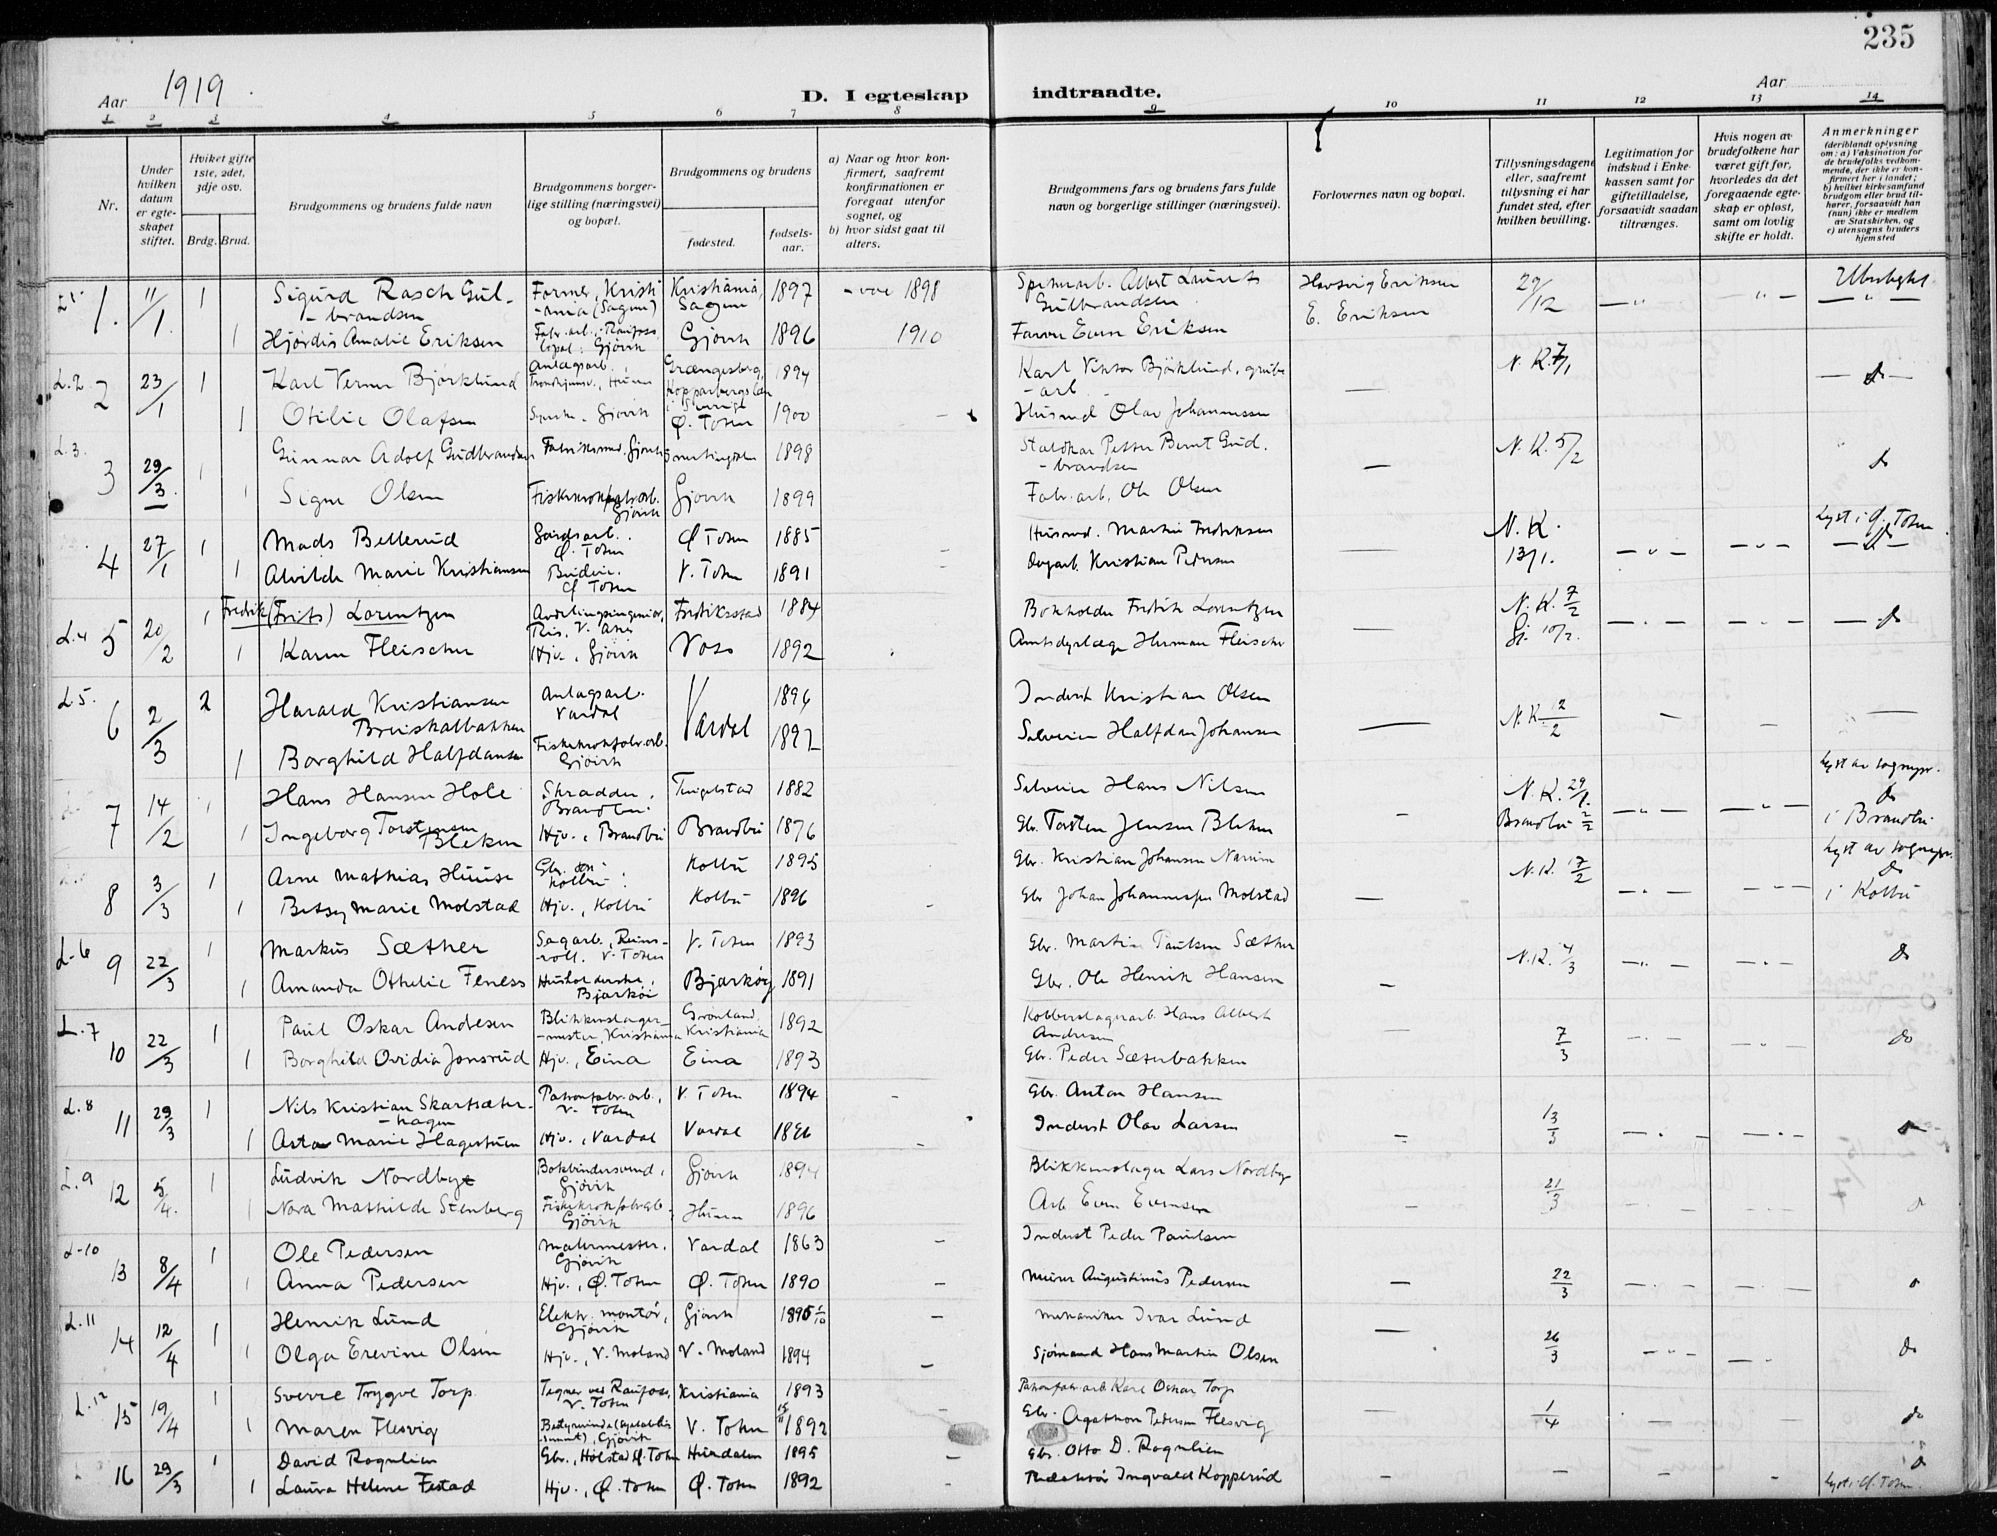 235
Aar 1919.
D. I egteskap indtraadte.
Aar
1 2 3 4 5 6 7 8 9 10 11 12 13 14
Nr.
Under hvilken datum er egteskapet stiftet.
Hviket gifte 1ste, 2det, 3dje osv.
Brdg. Brud.
Brudgommens og brudens fulde navn
Brudgommens borgerlige stilling (næringsvei) og bopæl.
Brudgommens og brudens
fødested.
fødselsaar.
a) Naar og hvor konfirmert, saafremt konfirmationen er foregaat utenfor sognet, og
b) hvor sidst gaat til alters.
Brudgommens fars og brudens fars fulde navn og borgerlige stillinger (næringsvei).
Forlovernes navn og bopæl.
Tillysningsdagene eller, saafremt tillysning ei har fundet sted, efter hvilken bevilling.
Legitimation for indskud i Enkekassen samt for giftetilladelse, forsaavidt saadan tiltrænges.
Hvis nogen av brudefolkene har været gift før, hvorledes da det foregaaende egteskap er opløst, samt om lovlig skifte er holdt.
Anmerkninger (deriblandt oplysning om: a) Vaksination for de brudefolks vedkommende, der ikke er konfirmert her i landet; b) hvilket kirkesamfund brudgom eller brud tilhører, forsaavidt han (hun) ikke er medlem av Statskirken, og c) utensogns bruders hjemsted
L1. 1. 11/1 1 Sigurd Rasch Gulbrandsen Former, Kristiania (Sagene) Kristiania, Sagene 1897 1898 Albert Laurits Gulbrandsen Eriksen 29/12
1 Hjørdis Amalie Eriksen Fabr.arb. Raufoss bopæl: Gjøvik Gjøvik 1896 1910 Farver Even Eriksen E. Eriksen
L.2 2 23/1 1 Karl Verner Björklund Anlægsarb. Grængesberg, Kopparbergs län i Sverige 1894 Karl Viktor Björklund, grubearb. N.K. 7/1 do
1 Otilie Olafsen Gjøvik Ø. Toten 1900 Husmd Olav Johannessen
L.3. 3 29/3 1 Gunnar Adolf Gudbrandsen Gjøvik 1898 Staldkar Petter Bernt Gudbrandsen N.K. 5/2 do
1 Signe Olsen Fiskekrokfabr.arb. Gjøvik Gjøvik 1899 Fabr.arb. Ole Olsen
4 27/1 1 Mads Bellerud Gaardsarb. Ø. Toten Ø Toten 1885 Husmd. Martin Fredriksen N.K. 13/1. lyst i Ø. Toten
1 Alvilde Marie Kristiansen Budeie. Ø Toten V. Toten 1891 Dagarb. Kristian Pedersen
L.4 5 20/2 1 Fredrik (Frits) Lorentzen Avdelingsingeniør, Ris, V. Aker Fredriksstad 1884 Bokholder Fredrik Lorentzen N.K. 7/2 Gj. 10/2. do
1 Karen Fleischer Hjv., Gjøvik Voss 1892 Amtsdyrlæge Herman Fleischer
L 5. 6 2/3 2 Harald Kristiansen Bruiskalbakken Anlægsarb. Vardal Vardal 1896 Inderst Kristian Olsen N.K. 12/2
1 Borghild Halfdansen Fiskekrokfabr.arb. Gjøvik 1892 Selveier Halfdan Johansen
7 14/2 1 Hans Hansen Hole Skrædder. Brandbu. Tingelstad 1882 Selveier Hans Nilsen N.K. 29/1. Brandbu 2/2 lyst av sognepr. do i Brandbu
1 Ingeborg Torstensen Bleken Hjv., Brandbu Brandbu 1876 Gbr. Torsten Jensen Bleken
8 3/3 1 Arne Mathias Huuse Gbr. Kolbu. Kolbu 1895 Gbr. Kristian Johansen N.K. 17/2 lyst av sognepr. do i Kolbu
1 Betsey Marie Molstad Hjv., Kolbu Kolbu 1896 Gbr Johan Johannessen Molstad
L-6 9 22/3 1 Markus Sæther Sagarb., Reinsvoll. V. Toten V. Toten 1893 Gbr. Martin Paulsen Sæther N.K. 4/3 do
1 Amanda Othelie Feness Husholderske, Bjarkøi Bjarkøy 1891 Gbr. Ole Henrik Hansen
L.7 10 22/3 1 Paul Oskar Andresen Blikkenslagermester, Kristiania Grønland, Kristiania 1892 Kobberslagerarb. Hans Albert Andresen 7/3 do
1 Borghild Ovidia Jonsrud Hjv., Eina Eina 1893 Gbr. Peder Sæterbakken
L.8 11 29/3 1 Nils Kristian Skartsæterhagen Patronfabr.arb., V. Toten V. Toten 1894 Gbr. Anton Hansen 13/3
1 Asta Marie Hagestuen Hjv., Vardal Vardal 1896 Inderst Olav Larsen
L.9 12 5/4. 1 Ludvik Nordbye Bokbindersvend, Gjøvik Gjøvik 1894 Blikkenslager Lars Nordby 21/3
1 Nora Mathilde Stenberg Fiskekrokfabr.arb. Gjøvik Hunn 1896 Arb Even Evensen
L-10 13 8/4 1 Ole Pedersen Malermester. Gjøvik Vardal 1863 Inderst Peder Paulsen 22/3
1 Anna Pedersen Hjv., Ø. Toten Ø. Toten 1890 Murer Augustinus Pedersen
L.11 14 12/4 1 Henrik Lund Elektr. montør, Gjøvik Gjøvik 1895 Mekaniker Ivar Lund 26/3 do
1 Olga Erevine Olsen Hjv., V. Moland V. Moland 1894 Sjømand Hans Martin Olsen
L.12 15 19/4 1 Sverre Trygve Torp Tegner ved Raufoss, V. Toten Kristiania 1893 Patronfabr.arb Karl Oskar Torp 1/4 do
1 Maren Flesvig Gjøvik V. Toten 1892 Gbr. Agathon Pedersen Flesvig
16 29/3 1 David Rognlien Gbr., Holstad Ø. Toten Hurdalen 1895 Gbr. Otto D. Rognlien
1 Laura Helene Festad Hjv., Ø. Toten Ø. Toten 1892 Redaktør Ingvald Kopperud lyst i Ø. Toten.